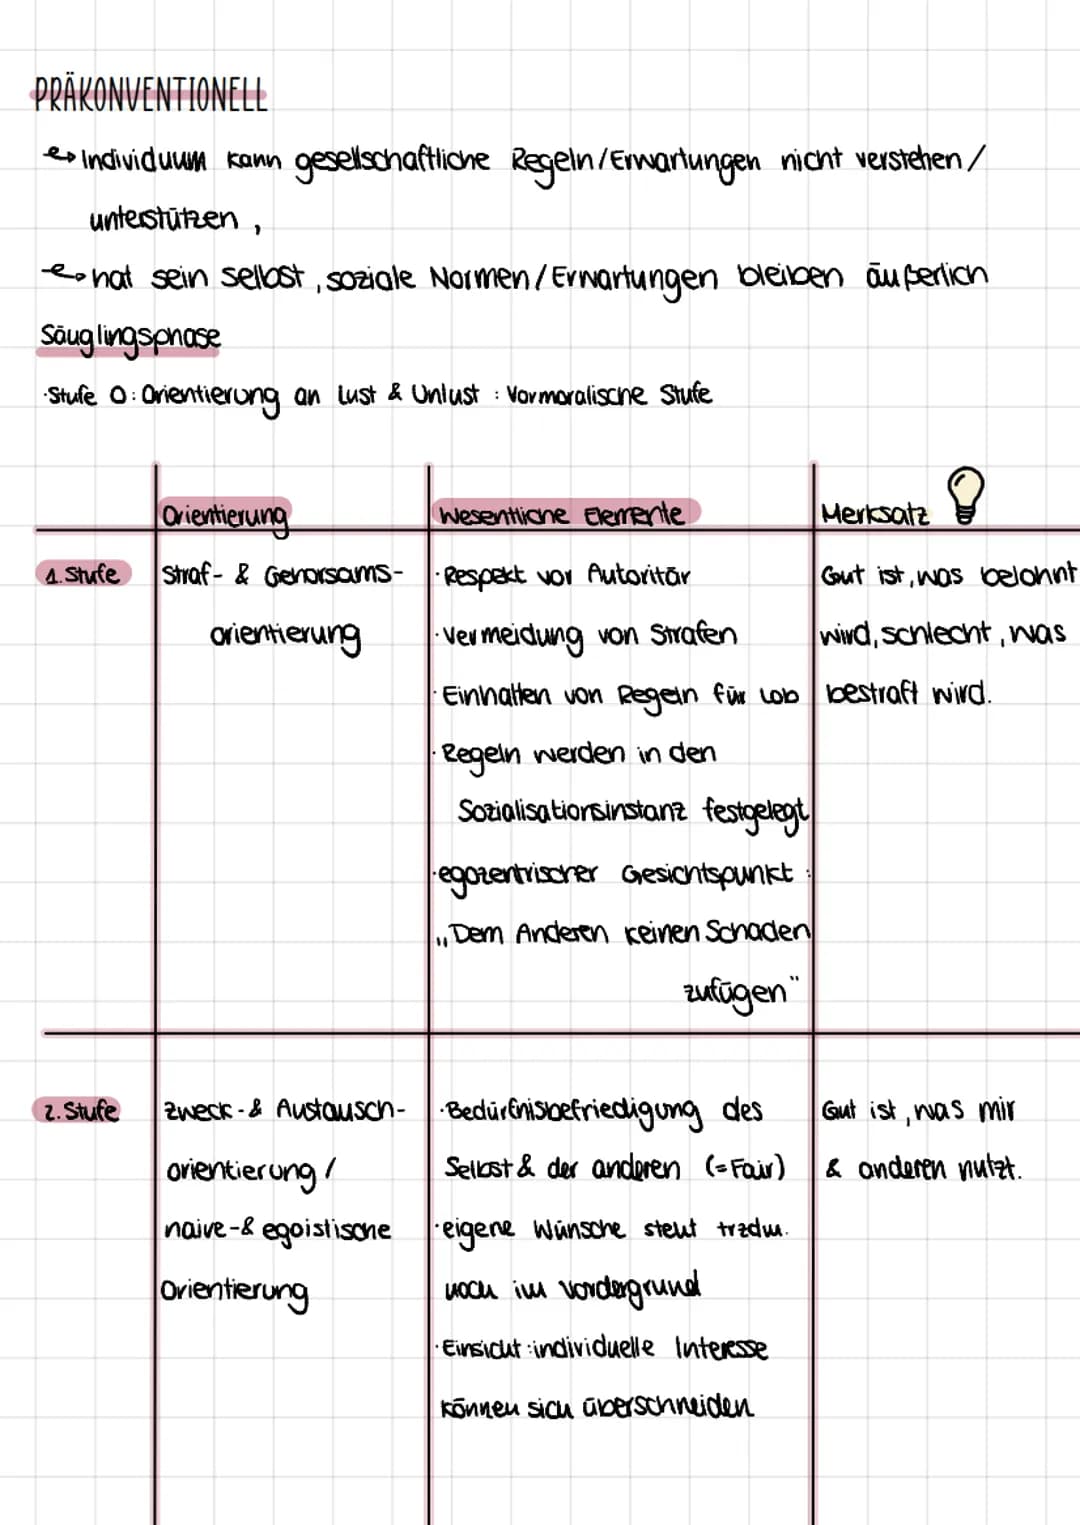 PRÄKONVENTIONELL
Individuum kann gesellschaftliche Regeln/Erwartungen nicht verstehen/
unterstützen,
hat sein selbst, soziale Normen/Erwartungen bleiben äußerlich
Säuglingsphase
·Stufe 0: Orientierung an Lust & Unlust : Vormoralische Stufe
Orientierung Wesentliche Elemente Merksatz
1. Stufe Straf- & Gehorsams- ·Respekt vor Autoritär Gut ist, was belohnt
orientierung ·Vermeidung von Strafen wird, schlecht, was
·Einhalten von Regeln für Lob bestraft wird.
·Regeln werden in den
Sozialisationsinstanz festgelegt
·egozentrischer Gesichtspunkt:
„Dem Anderen keinen Schaden
zufügen"
2. Stufe Zweck-& Austausch- ·Bedürfnisbefriedigung des Gut ist, was mir
orientierung/ Selbst & der anderen (=Fair) & anderen nutzt.
naive-& egoistische ·eigene Wünsche steht trzdm.
Orientierung noch im Vordergrund
·Einsicht: individuelle Interesse
können sich überschneiden